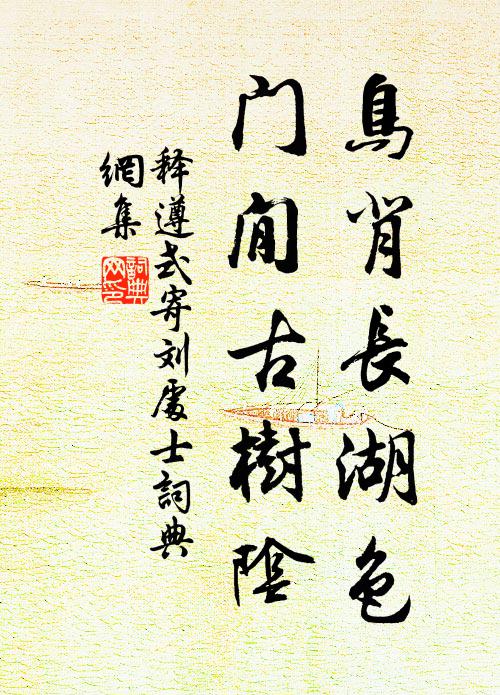 鳥背長湖色
門閒古樹陰
释遵式寄刘處士詞典
網集
詞典
网印